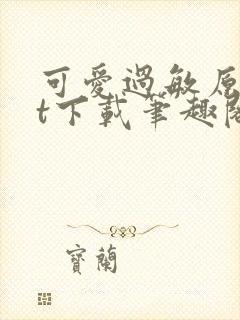 可愛過敏原
t下載筆趣閣
寶蘭